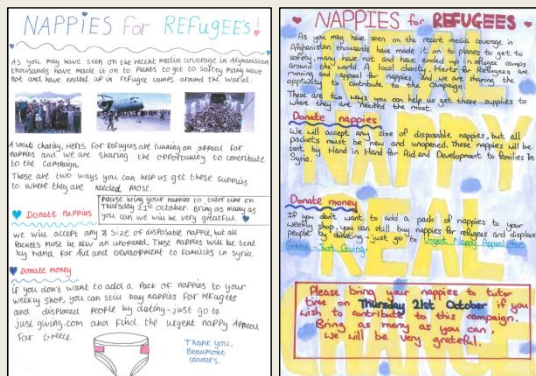 NAPPIES for REFUGEE'S!
As you may have seen on the recent media coverage in Afghanistan
thousands have made it on to planes to get to safety many have
not and have ended up in refugee camps around the world.
A local charity, Herts for Refugees are running an appeal for
nappies and we are sharing the opportunity to contribute
to the campaign.
These are two ways you can help us get these supplies
to where they are needed most.
Please bring your nappies to tutor time on
Thursday 21st October. Bring as many as
you can we will be very greatful.
Donate nappies
We will accept any size of disposable nappie, but all
packets must be new an unopened. These nappies will be sent
by hand for Aid and Development to families in Syria.
Donate money
if you don't want to add a pack of nappies to your
weekly shop, you can still buy nappies for refugees
and displaced people by dating - just go to
Just giving.com and find the urgent nappy Appeal
for Greece.
Thank you,
Beaumont
leaders.
NAPPIES for REFUGEES
As you may have seen on the recent media coverage in
Afghanistan thousands have made it on to planes to get to
safety, many have not and have ended up in refugee camps
around the world. A local charity, Herts for Refugees are
running and appeal for nappies and we are sharing the
to contribute to the campaign.
These are two ways you can help us get these supplies to
where they are needed the most.
Donate nappies
We will accept any size of disposable nappies, but all
packets must be new and unopened. These nappies will be
sent by Hand in Hand for Aid and Development to families in
Syria.
Donate money
If you don't want to add a pack of nappies to your
weekly shop, you can still buy nappies for refugees and displaced
people by donating - just go to Urgent Nappy Appeal for
Greece - Just Giving.
Please bring your nappies to tutor
time on Thursday 21st October if you
wish to contribute to this campaign.
Bring as many as you can,
we will be very grateful.
REAL
NAPPY
REAL
CHANGE